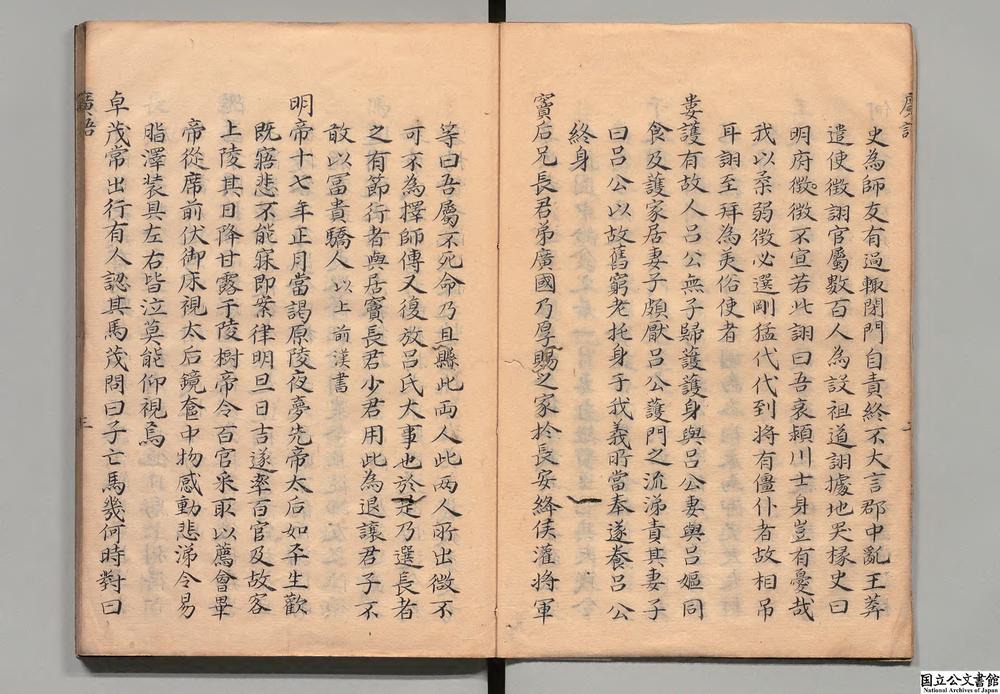 史為師友有過輙閉門自責終不大言郡中亂王莽
遣使徵詡官屬數百人為設祖道詡據地哭掾史曰
明府徵徵不宜若此詡曰吾哀潁川士身豈有憂哉
我以柔弱徵必選剛猛代代到將有僵仆者故相吊
耳詡至拜為美俗使者
婁護有故人呂公無子歸護護身與呂公妻與呂嫗同
食及護家居妻子頗厭呂公護聞之流涕責其妻子
曰呂公以故舊窮老托身于我義所當奉遂養呂公
終身
竇后兄長君弟廣國乃厚賜之家於長安絳侯灌將軍
等曰吾屬不死命乃且縣此両人此両人所出微不
可不為擇師傅又復放呂氏大事也於是乃選長者
之有節行者與居竇長君少君用此為退讓君子不
敢以冨貴驕人以上前漢書
明帝十七年正月當謁原陵夜夢先帝太后如平生歡
既寤悲不能寐即案律明旦日吉遂率百官及故客
上陵其日降甘露于陵樹帝令百官采取以薦會畢
帝從席前伏御床視太后鏡奩中物感動悲涕令易
脂澤装具左右皆泣莫能仰視焉
卓茂常出行有人認其馬茂問曰子亡馬幾何時對曰
廣語
三
国立公文書館
National Archives of Japan